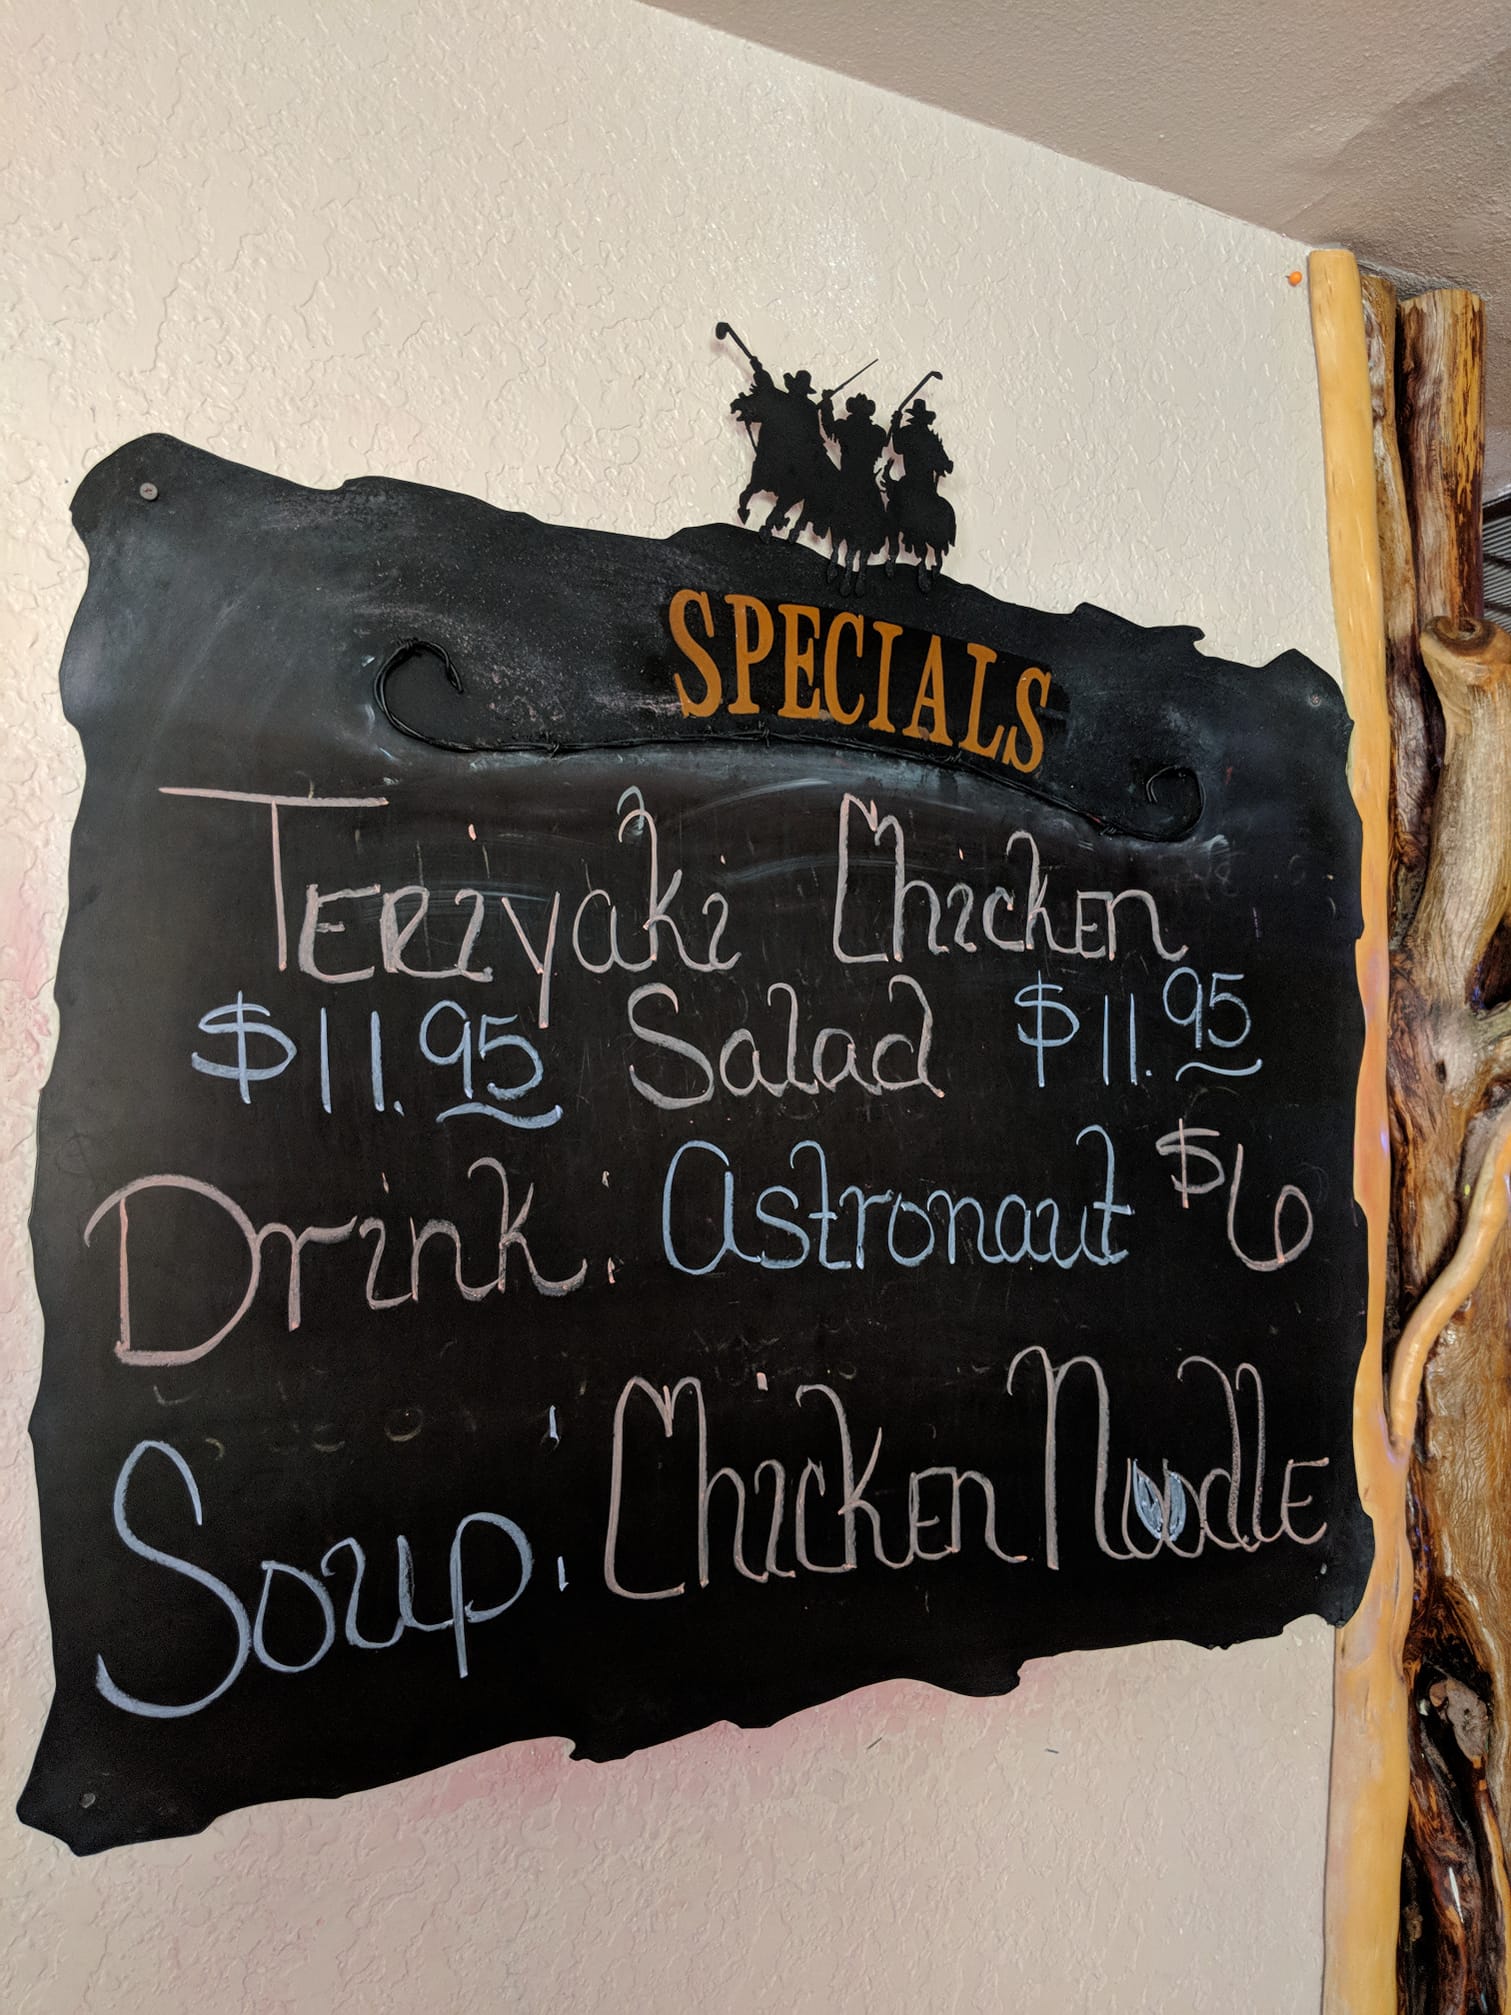 SPECIALS
Teriyaki Chicken
$11.95 Salad $11.95
Drink: Astronaut $6
Soup: Chicken Noodle